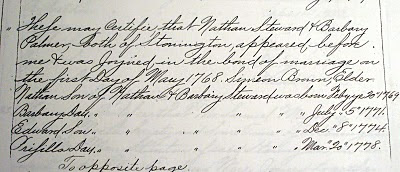 " These may Certifie that Nathan Steward & Barbary
Palmer, both of Stonington, appeared, before
me & was Joined in the bond of marriage on
the first Day of May, 1768. Simeon Brown, Elder
Nathan Son of Nathan & Barbary Steward was born Feby ye 20th 1769
Barbary Dau. " " " " " July, 5th 1771.
Edward Son " " " " " Dec. 8th 1774.
Prifilla Dau. " " " " " Mar. 20th 1778.
To opposite page.